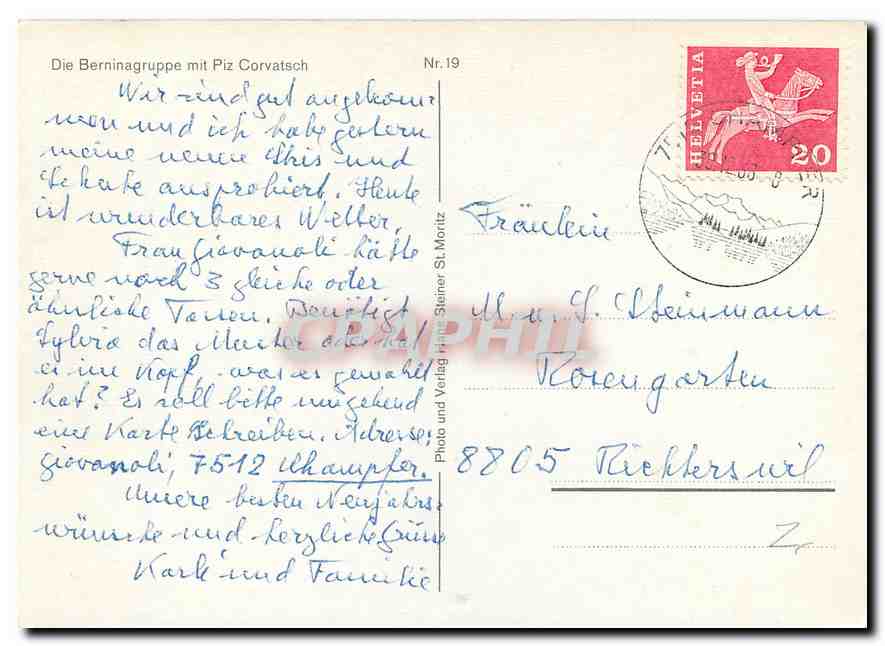 Die Berninagruppe mit Piz Corvatsch
Nr. 19
Wir sind gut angekom-
men und ich habe gestern
meine neuen Skis und
Schuhe ausprobiert. Heute
ist wunderbares Wetter.
Frau Giovanoli hätte
gerne noch 3 gleiche oder
ähnliche Tassen. Benötigt
Sylvia das Muster oder hat
sie im Kopf, was es gewählt
hat? Es soll bitte umgehend
eine Karte schreiben. Adresse:
Giovanoli, 7512 Champfer.
Unsere besten Neujahrs-
wünsche und herzliche Grüsse
Karli und Familie
Photo und Verlag Hans Steiner St. Moritz
HELVETIA
20
Fräulein
M. u. S. Steinmann
Rosengarten
8805 Richterswil
CPAPHIL